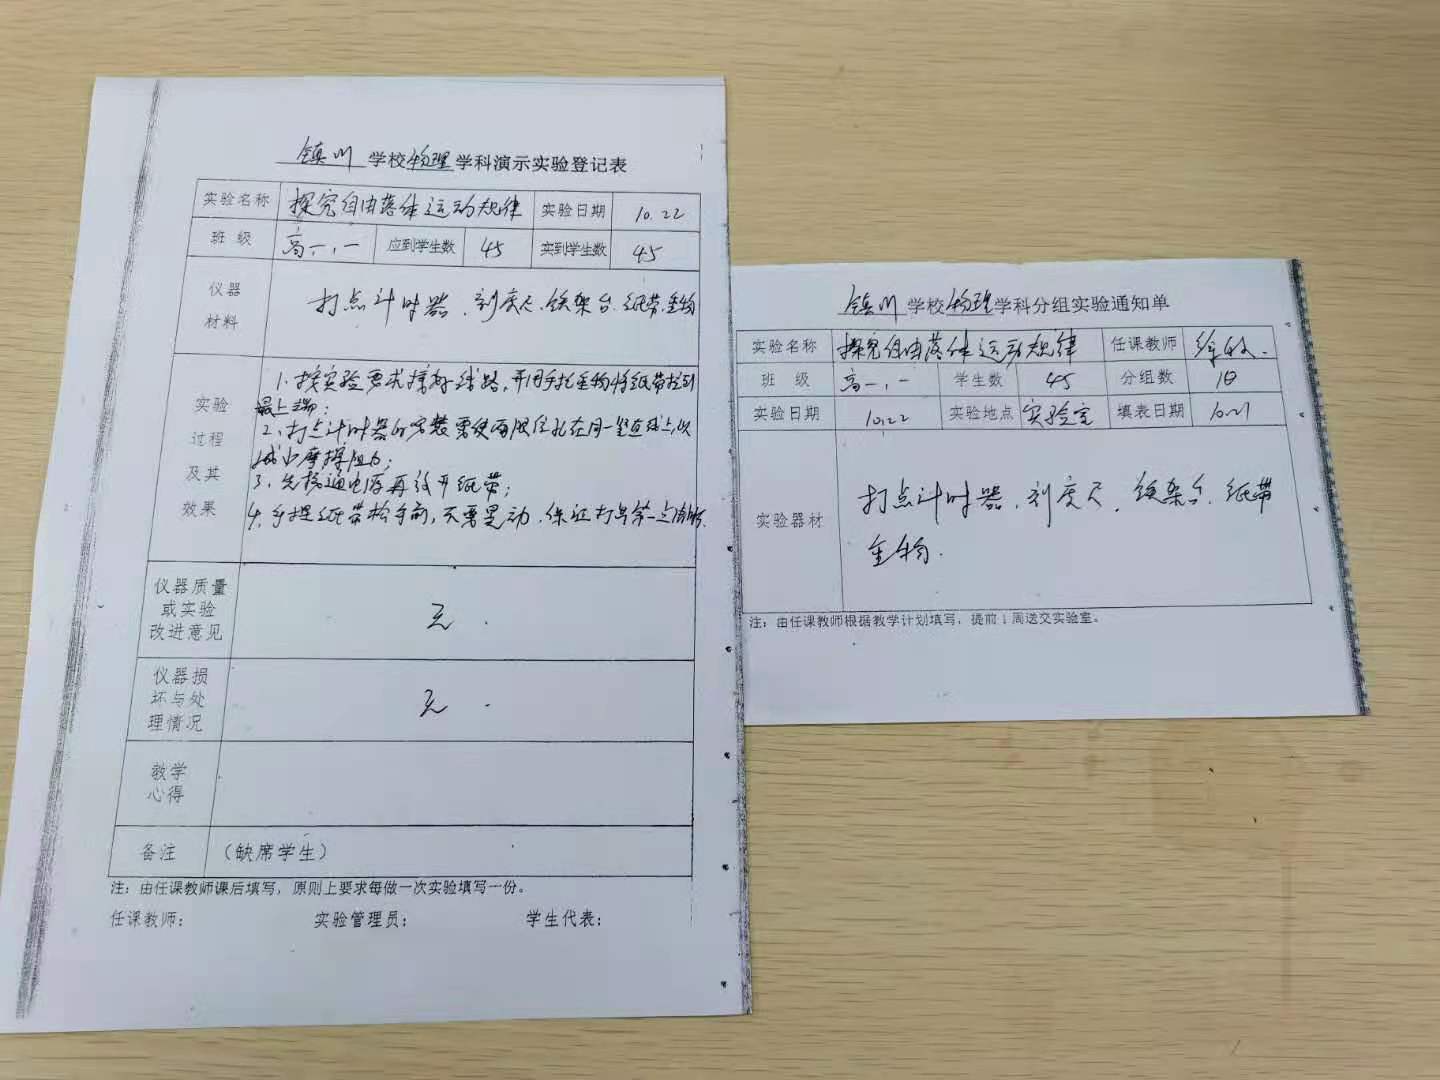 镇川 学校 物理 学科演示实验登记表
实验名称 探究自由落体运动规律 实验日期 10.22
班 级 高一,一 应到学生数 45 实到学生数 45
仪器
材料
打点计时器、刻度尺、铁架台、纸带、重物
实验
过程
及其
效果
1、按实验要求接好线路,并用手托重物将纸带拉到
最上端;
2、打点计时器的安装需使两限位孔在同一竖直线上,以
减少摩擦阻力;
3、先接通电源再放开纸带;
4、手捏纸带松手前,不要晃动,保证打出第一点清晰.
仪器质量
或实验
改进意见
无.
仪器损
坏与处
理情况
无.
教学
心得
备注 (缺席学生)
注:由任课教师课后填写,原则上要求每做一次实验填写一份。
任课教师: 实验管理员: 学生代表:
镇川 学校 物理 学科分组实验通知单
实验名称 探究自由落体运动规律 任课教师
班 级 高一,一 学生数 45 分组数
实验日期 10.22 实验地点 实验室 填表日期 10.21
实验器材
打点计时器、刻度尺、铁架台、纸带
重物.
注:由任课教师根据教学计划填写,提前1周送交实验室。